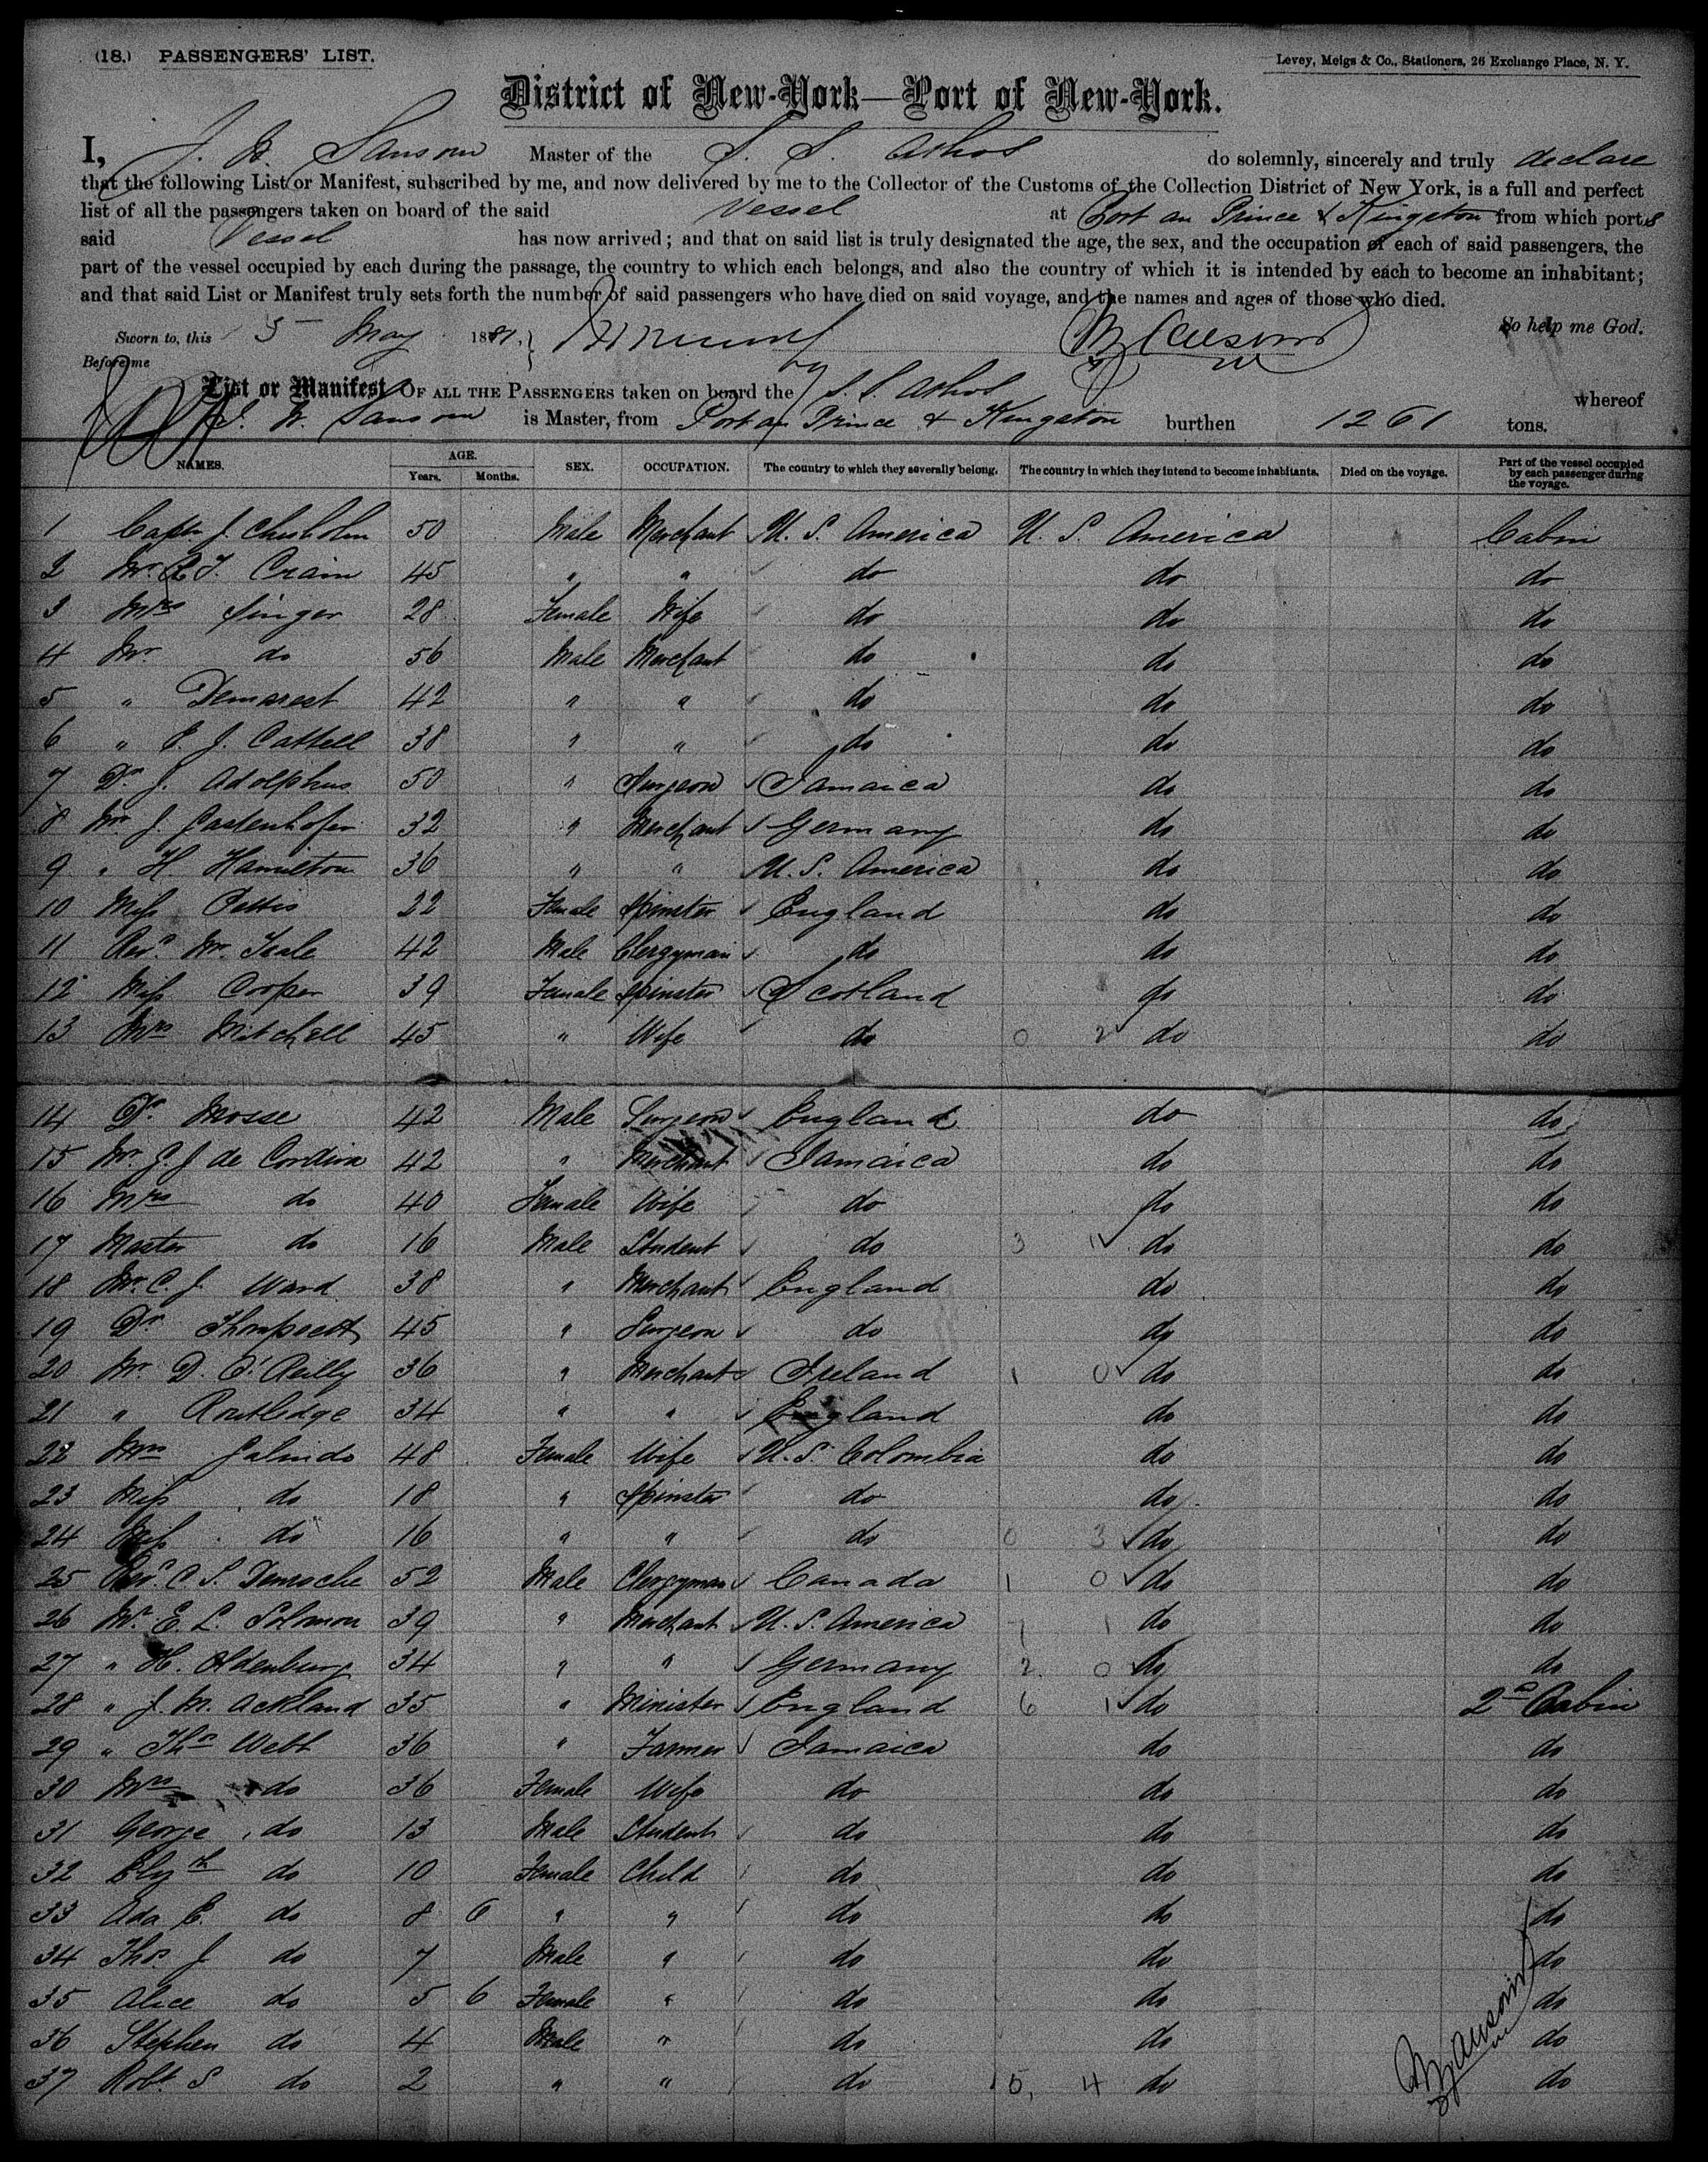 (18.) PASSENGERS' LIST.
Levey, Meigs & Co., Stationers, 26 Exchange Place, N. Y.
District of New-York—Port of New-York.
I, J. W. Sansom Master of the S. S. Athos do solemnly, sincerely and truly declare
that the following List or Manifest, subscribed by me, and now delivered by me to the Collector of the Customs of the Collection District of New York, is a full and perfect
list of all the passengers taken on board of the said Vessel at Port au Prince & Kingston from which ports
said Vessel has now arrived; and that on said list is truly designated the age, the sex, and the occupation of each of said passengers, the
part of the vessel occupied by each during the passage, the country to which each belongs, and also the country of which it is intended by each to become an inhabitant;
and that said List or Manifest truly sets forth the number of said passengers who have died on said voyage, and the names and ages of those who died.
So help me God.
Sworn to, this 5 May 1881,
Before me
List or Manifest OF ALL THE PASSENGERS taken on board the S. S. Athos whereof
J. W. Sansom is Master, from Port au Prince & Kingston burthen 1261 tons.
NAMES. AGE. Years. Months. SEX. OCCUPATION. The country to which they severally belong. The country in which they intend to become inhabitants. Died on the voyage. Part of the vessel occupied by each passenger during the voyage.
1 Captn J. Chisholm 50 Male Merchant U. S. America U. S. America Cabin
2 Mr. T. Crain 45 " " do do do
3 Mrs Singer 28 Female Wife do do do
4 Mr. do 56 Male Merchant do do do
5 " Demarest 42 " " do do do
6 " P. J. Cattell 38 " " do do do
7 Dr. J. Adolphus 50 " Surgeon Jamaica do do
8 Mr J. Gastenhofer 32 " Merchant Germany do do
9 " H. Hamilton 36 " " U. S. America do do
10 Miss Pettis 22 Female Spinster England do do
11 Revd. Mr. Teale 42 Male Clergyman do do do
12 Miss Cooper 39 Female Spinster Scotland do do
13 Mrs Mitchell 45 " Wife do 0 2 do do
14 Dr Mosse 42 Male Surgeon England do do
15 Mr. J. J de Cordiva 42 " Merchant Jamaica do do
16 Mrs do 40 Female Wife do do do
17 Master do 16 Male Student do 3 1 do do
18 Mr. C. J. Ward 38 " Merchant England do do
19 Dr 45 " Surgeon do do do
20 Mr. D. O'Reilly 36 " Merchant Ireland 1 0 do do
21 " Routledge 34 " " England do do
22 Mrs Galindo 48 Female Wife U. S. Colombia do do
23 Miss do 18 " Spinster do do do
24 Miss do 16 " " do 0 3 do do
25 Revd. C. S. Demroche 52 Male Clergyman Canada 1 0 do do
26 Mr. E. L. Solomon 39 " Merchant U. S. America 7 1 do do
27 " H. Oldenburg 34 " " Germany 2 0 do do
28 " J. M. Ackland 35 " Minister England 6 1 do 2nd Cabin
29 " Ths Webb 36 " Farmer Jamaica do do
30 Mrs do 36 Female Wife do do do
31 George do 13 Male Student do do do
32 Elizth do 10 Female Child do do do
33 Ada E. do 8 6 " " do do do
34 Thos. J do 7 Male " do do do
35 Alice do 5 6 Female " do do do
36 Stephen do 4 Male " do do do
37 Robt. S do 2 " " do 5, 4 do do